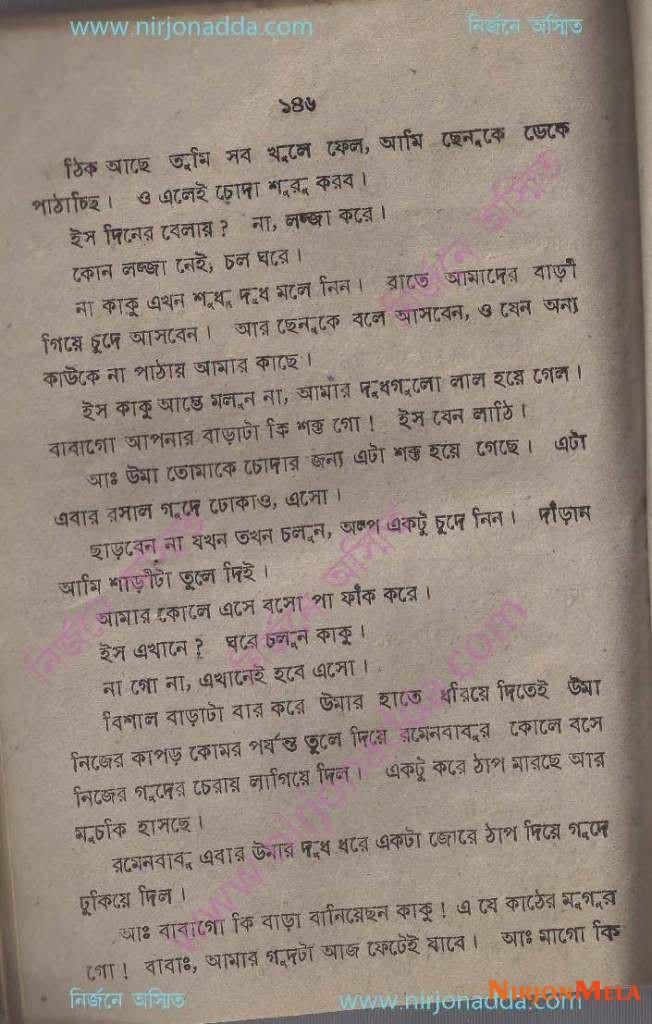 www.nirjonadda.com
নির্জনে অস্মিত
১৪৬
ঠিক আছে তুমি সব খুলে ফেল, আমি ছেনুকে ডেকে
পাঠাচ্ছি। ও এলেই চোদা শুরু করব।
ইস দিনের বেলায়? না, লজ্জা করে।
কোন লজ্জা নেই, চল ঘরে।
না কাকু এখন শুধু দুধ মলে নিন। রাতে আমাদের বাড়ী
গিয়ে চুদে আসবেন। আর ছেনুকে বলে আসবেন, ও যেন অন্য
কাউকে না পাঠায় আমার কাছে।
ইস কাকু আস্তে মলুন না, আমার দুধগুলো লাল হয়ে গেল।
বাবাগো আপনার বাড়াটা কি শক্ত গো! ইস যেন লাঠি।
আঃ উমা তোমাকে চোদার জন্য এটা শক্ত হয়ে গেছে। এটা
এবার রসাল গুদে ঢোকাও, এসো।
ছাড়বেন না যখন তখন চলুন, অল্প একটু চুদে নিন। দাঁড়ান
আমি শাড়ীটা তুলে দিই।
আমার কোলে এসে বসো পা ফাঁক করে।
ইস এখানে? ঘরে চলুন কাকু।
না গো না, এখানেই হবে এসো।
বিশাল বাড়াটা বার করে উমার হাতে ধরিয়ে দিতেই উমা
নিজের কাপড় কোমর পর্যন্ত তুলে দিয়ে রমেনবাবুর কোলে বসে
নিজের গুদের চেরায় লাগিয়ে দিল। একটু করে ঠাপ মারছে আর
মুচকি হাসছে।
রমেনবাবু এবার উমার দুধ ধরে একটা জোরে ঠাপ দিয়ে গুদে
ঢুকিয়ে দিল।
আঃ বাবাগো কি বাড়া বানিয়েছেন কাকু! এ যে কাঠের মুগুর
গো! বাবাঃ, আমার গুদটা আজ ফেটেই যাবে। আঃ মাগো কি
নির্জনে অস্মিত
www.nirjonadda.com
NIRJONMELA
নির্জনে অস্মিত
www.nirjonadda.com